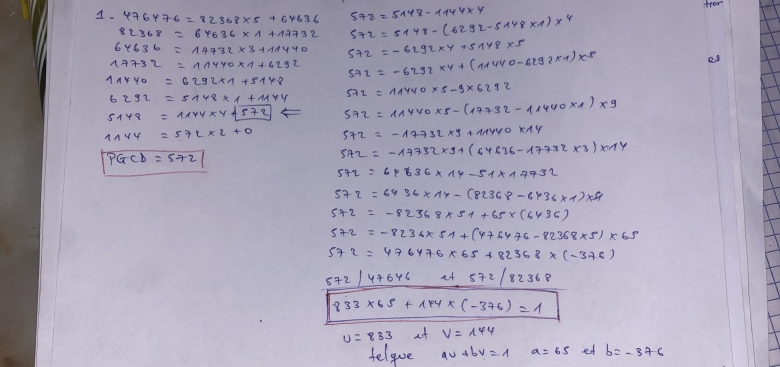 1. 476476 = 82368×5 + 64636
82368 = 64636 × 1 + 17732
64636 = 17732 × 3 + 11440
17732 = 11440×1 + 6292
11440 = 6292×1 + 5148
6292 = 5148×1 + 1144
5148 = 1144×4 + 572 ⇐
1144 = 572 × 2 + 0
PGCD = 572
572 = 5148 - 1144×4
572 = 5148 - (6292 - 5148×1) × 4
572 = -6292×4 + 5148 ×5
572 = -6292×4 + (11440 - 6292×1) × 5
572 = 11440 ×5 - 9×6292
572 = 11440×5 - (17732 - 11440×1) × 9
572 = -17732×9 + 11440 ×14
572 = -17732×9 + (64636 - 17732 ×3) × 14
572 = 64636 × 14 - 51 × 17732
572 = 6436 × 14 - (82368 - 6436 ×1) × 51
572 = -82368 × 51 + 65 × (6436)
572 = -8236 × 51 + (476476 - 82368×5) × 65
572 = 476476 × 65 + 82368 × (-376)
572 / 47646 et 572 / 82368
833 × 65 + 144 × (-376) = 1
U = 833 et V = 144
telque au + bv = 1 a = 65 et b = -376
es